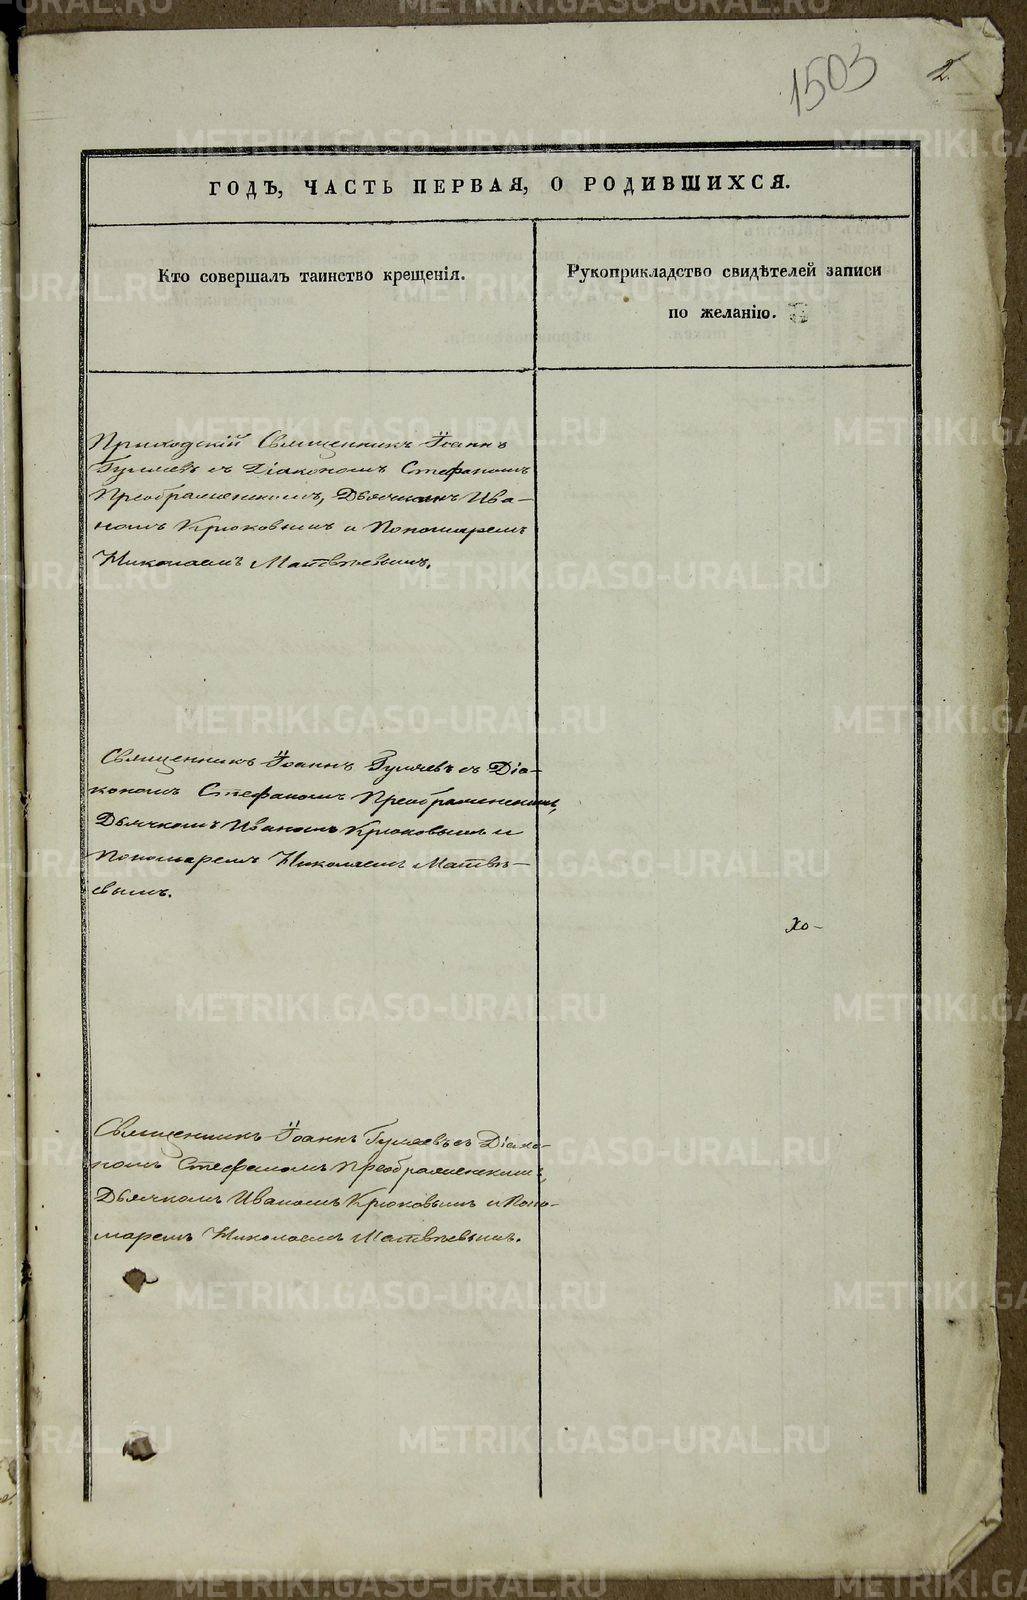 1503
2
ГОДЪ, ЧАСТЬ ПЕРВАЯ, О РОДИВШИХСЯ.
Кто совершалъ таинство крещенія.
Рукоприкладство свидѣтелей записи
по желанію.
Приходскій Священникъ Іоаннъ
Гуляевъ съ Діакономъ Стефаномъ
Преображенскимъ, Дьячкомъ Ива-
номъ Крюковымъ и Пономаремъ
Николаемъ Матвѣевымъ.
Священникъ Іоаннъ Гуляевъ съ Діа-
кономъ Стефаномъ Преображенскимъ,
Дьячкомъ Иваномъ Крюковымъ и
Пономаремъ Николаемъ Матвѣ-
евымъ.
Хо-
Священникъ Іоаннъ Гуляевъ съ Діако-
номъ Стефаномъ Преображенскимъ,
Дьячкомъ Иваномъ Крюковымъ и Поно-
маремъ Николаемъ Матвѣевымъ.
METRIKI.GASO-URAL.RU